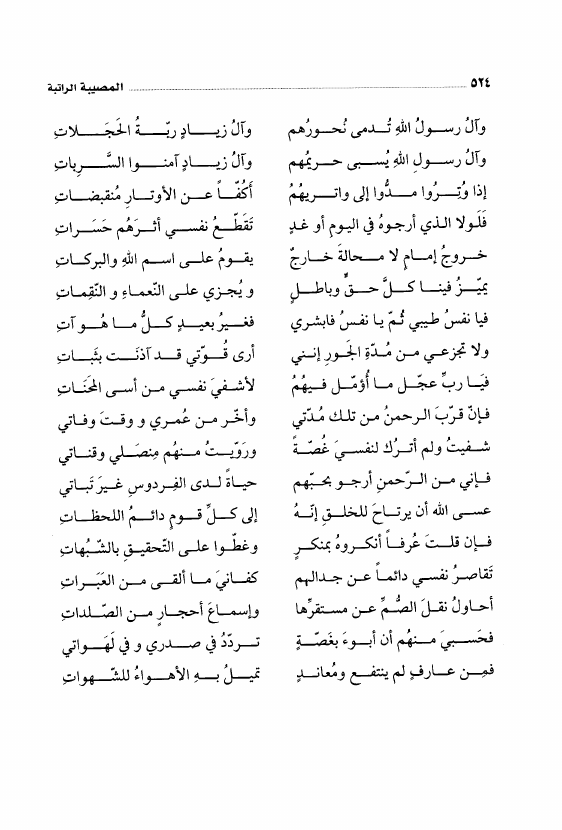 ٥٢٤ ........ المصيبة الراتبة
وآلُ رسولُ اللهِ تُدمى نُحورُهم وآلُ زيادٍ ربّةُ الحَجَلاتِ
وآلُ رسولِ اللهِ يُسبى حريمُهم وآلُ زيادٍ آمنوا السَّرباتِ
إذا وُتِرُوا مدُّوا إلى واتريهُمُ أكُفّاً عن الأوتارِ مُنقبضاتِ
فَلَولا الذي أرجوهُ في اليوم أو غدٍ تَقَطّعُ نفسي أثرَهُم حَسَراتِ
خروجُ إمامٍ لا محالةَ خارجٌ يقومُ على اسم اللهِ والبركاتِ
يميّزُ فينا كلَّ حقٍّ وباطلٍ و يُجزي على النّعماءِ و النّقِماتِ
فيا نفسُ طيبي ثُمّ يا نفسُ فابشري فغيرُ بعيدٍ كلُّ ما هُو آتِ
ولا تجزعي من مُدّةِ الجَورِ إنني أرى قُوّتي قد آذنَت بثَباتِ
فيَا ربِّ عجّل ما أُؤمّل فيهُمُ لأشفيَ نفسي من أسى المحَنَاتِ
فإنّ قرّبَ الرحمنُ من تلك مُدّتي وأخّر من عُمري و وقتَ وفاتي
شفيتُ ولم أترُك لنفسيَ غُصّةً وروّيتُ منهُم مِنصَلي وقناتي
فإني من الرّحمنِ أرجو بحبّهم حياةً لدى الفِردوسِ غيرَ تَباتي
عسى الله أن يرتاحَ للخلقِ إنّهُ إلى كلِّ قومٍ دائمُ اللحظاتِ
فإن قلتَ عُرفاً أنكروهُ بمنكرٍ وغطّوا على التّحقيقِ بالشّبُهاتِ
تَقاصرُ نفسي دائماً عن جدالهم كفانيَ ما ألقى من العَبَراتِ
أحاولُ نقلَ الصُّمِّ عن مستقرِّها وإسماعَ أحجارٍ من الصّلداتِ
فحَسبيَ منهُم أن أبوءَ بغَصّةٍ تردّدُ في صدري و في لَهَواتي
فمِن عارفٍ لم ينتفع ومُعاندٍ تميلُ به الأهواءُ للشّهواتِ